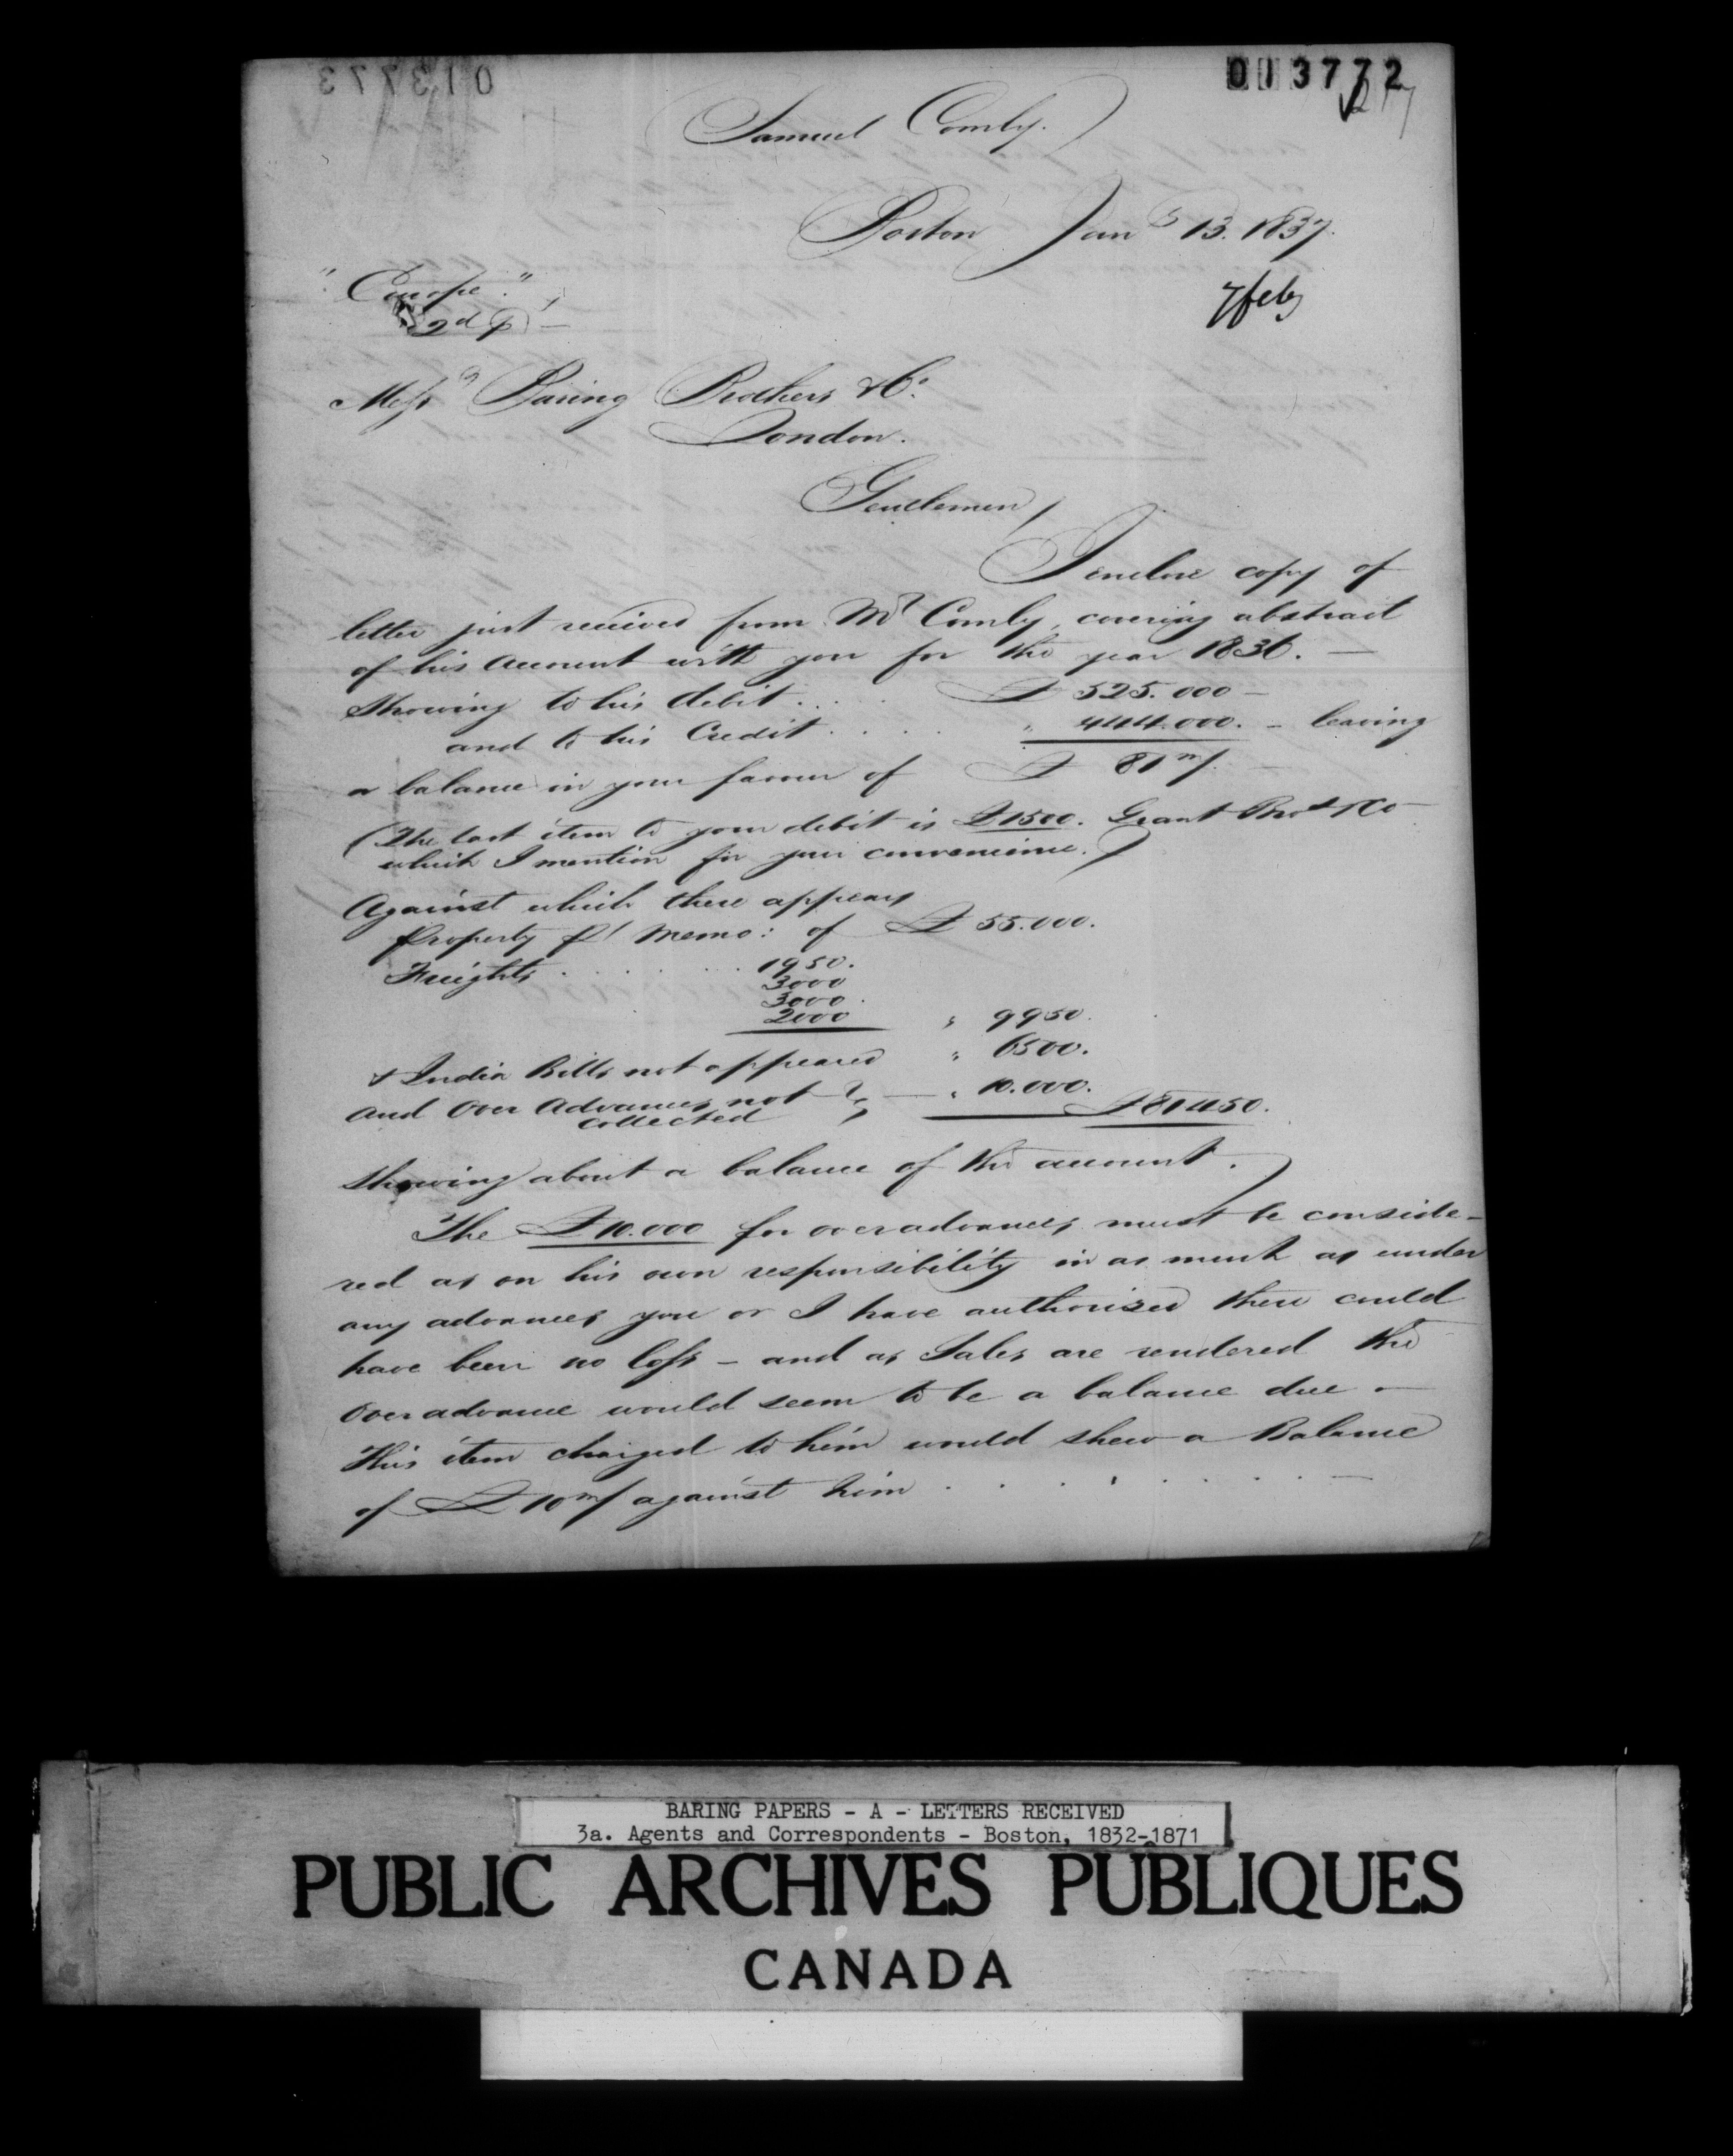 013772
013773
Samuel Comly.
Boston Jany 13. 1837.
"Europe."
7 feby
2d p
Messrs Baring Brothers & Co.
London.
Gentlemen,
I enclose copy of
letter just received from Mr Comly, covering abstract
of his account with you for the year 1836. —
Showing to his debit . . . . £ 525.000 —
and to his Credit . . . . " 444.000. — leaving
a balance in your favour of £ 81m/. —
(The last item to your debit is £1500. Grant Bros & Co
which I mention for your convenience.)
Against which there appears
Property pr memo: of £ 55.000.
Freights . . . . . . . 1950.
3000
3000
2000 " 9950.
& India Bills not appeared " 6500.
and Over Advances not — " 10.000.
collected £81450.
Showing about a balance of the account.
The £10.000 for overadvances must be conside-
red as on his own responsibility in as much as under
any advances you or I have authorised there could
have been no loss — and as Sales are rendered the
Overadvance would seem to be a balance due —
This item charged to him would shew a Balance
of £10m/ against him . . . . . . . . —
BARING PAPERS - A - LETTERS RECEIVED
3a. Agents and Correspondents - Boston, 1832-1871
PUBLIC ARCHIVES PUBLIQUES
CANADA